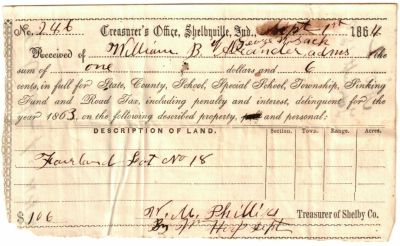 No. 246 Treasurer's Office, Shelbyville, Ind. Sept 1st 1864
Received of William B Alexander adms the
sum of one dollars and 6
cents, in full for State, County, School, Special School, Township, Sinking
Fund and Road Tax, including penalty and interest, delinquent for the
year 1863 on the following described property, and personal:
DESCRIPTION OF LAND. Section. Town. Range. Acres.
Fairland Lot No 18
$ 1 06 W. M. Phillips Treasurer of Shelby Co.
By Dept